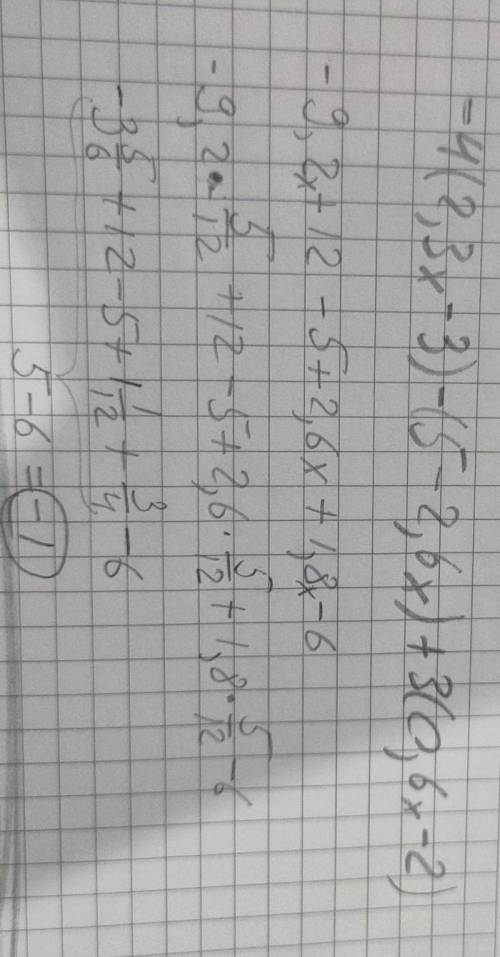 -4(2,3x-3)-(5-2,6x)+3(0,6x-2)
-9,2x+12-5+2,6x+1,8x-6
-9,2·5/12+12-5+2,6·5/12+1,8·5/12-6
-3 5/6+12-5+1 1/12+3/4-6
5-6=-1